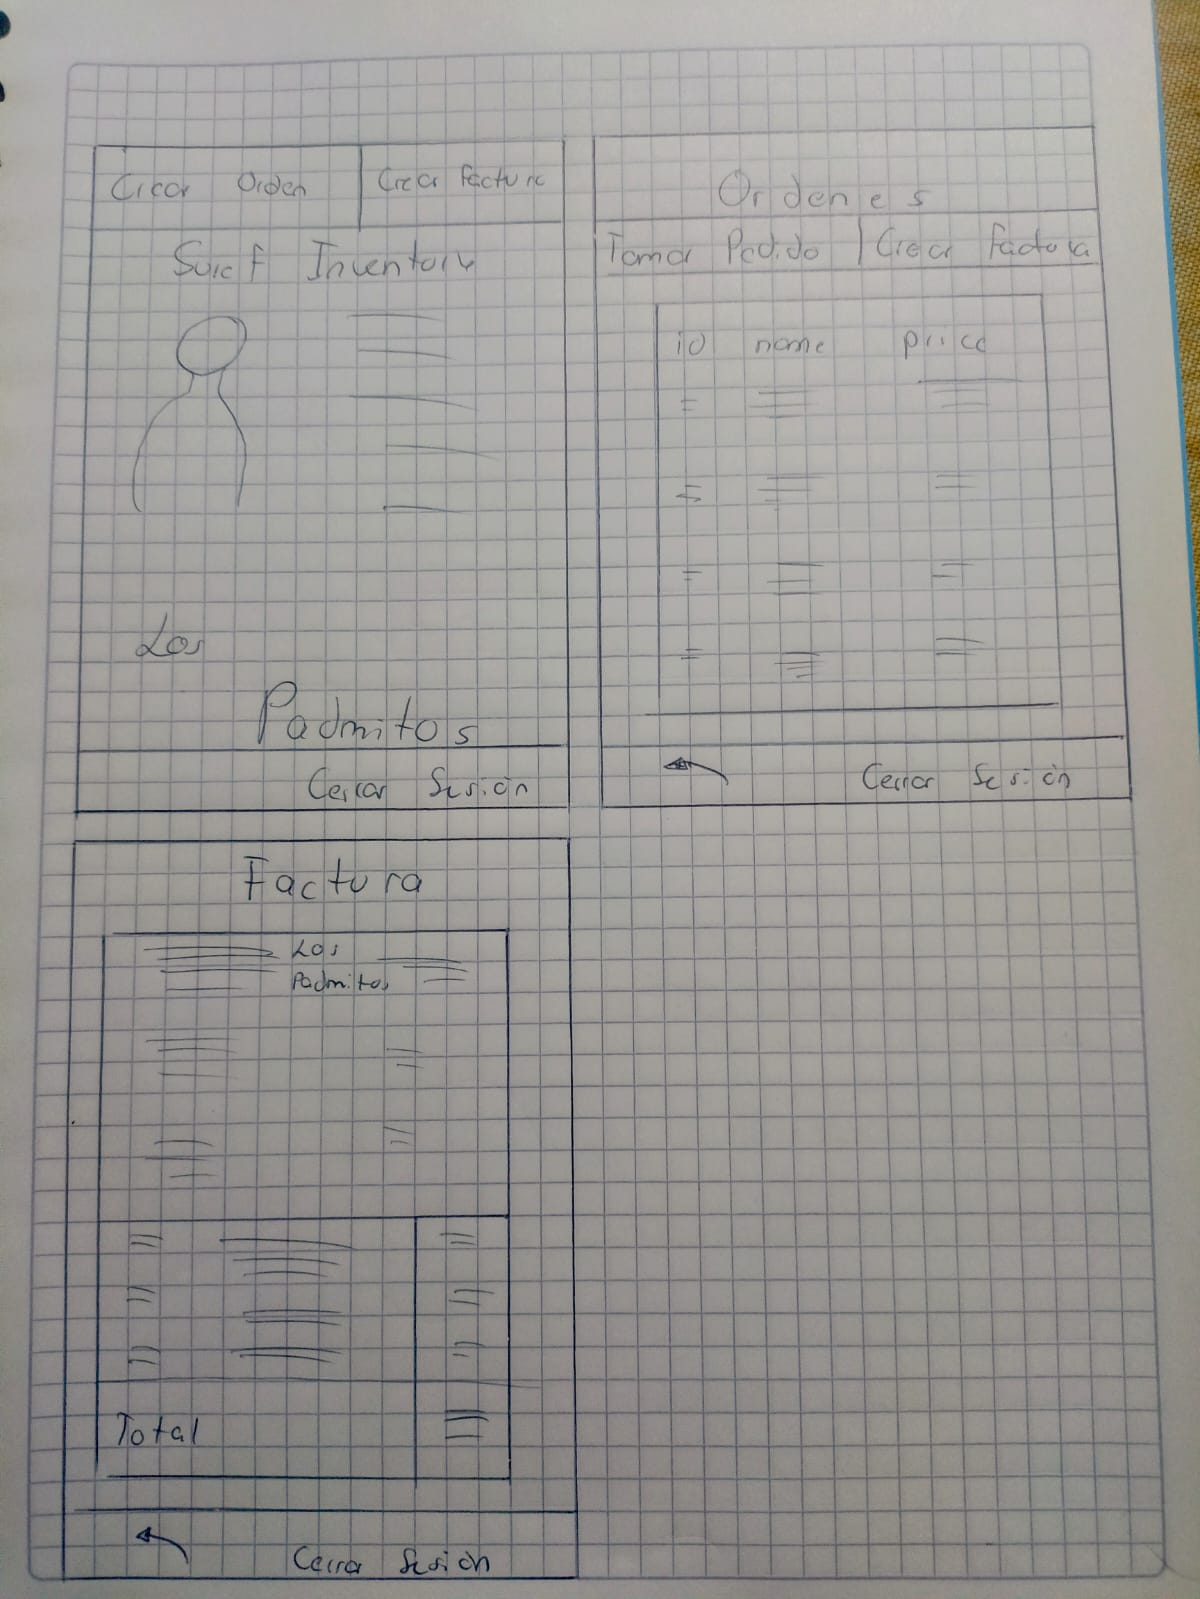 Crear Orden
Crear Factura
Surcf Inventory
Los
Padmitos
Cerrar Sesión
Ordenes
Tomar Pedido
Crear Factura
id name price
Cerrar Sesión
Factura
Los
Padmitos
Total
Cerrar Sesión